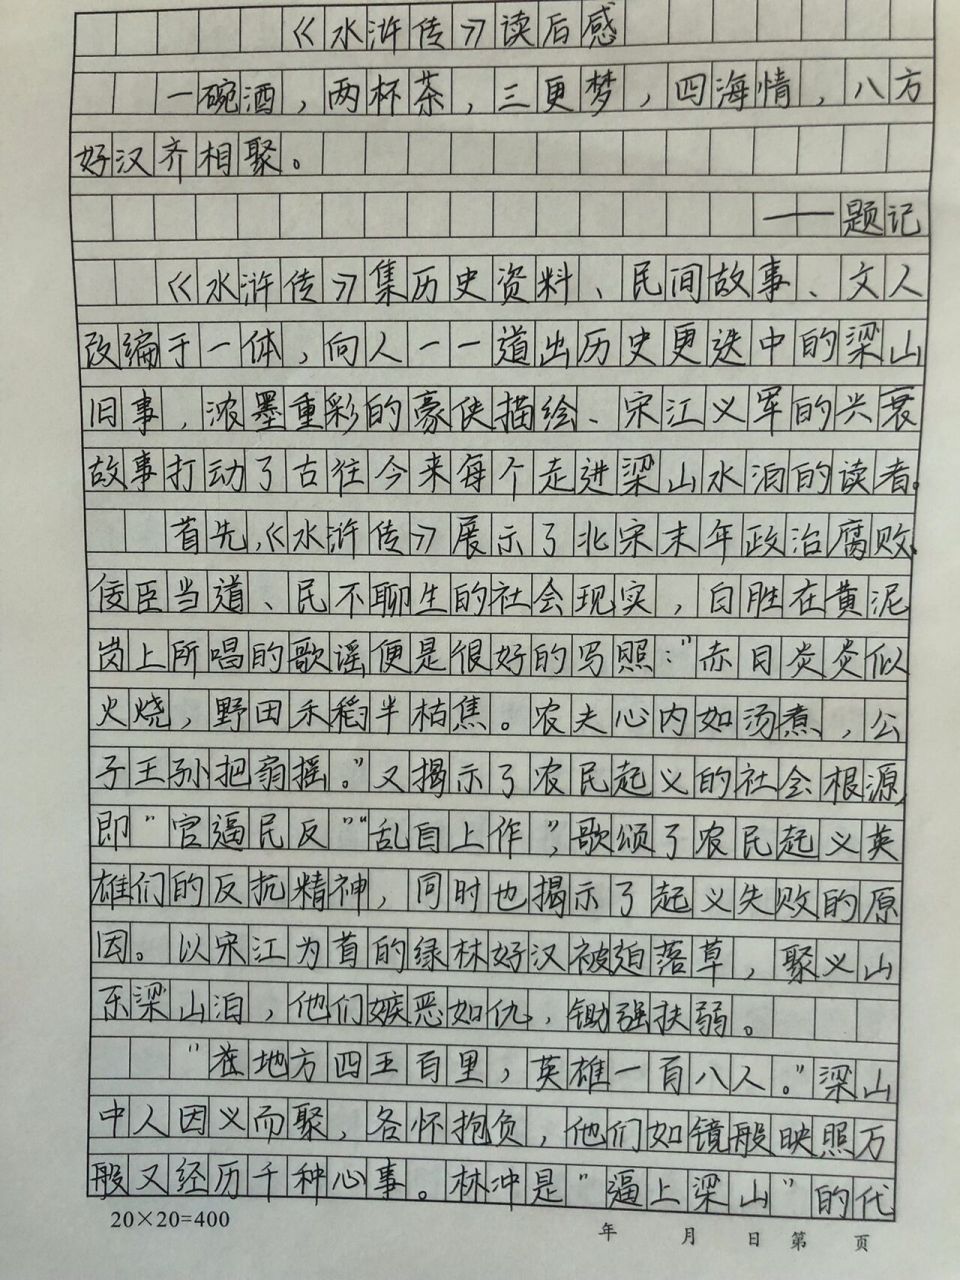 《水浒传》读后感
一碗酒，两杯茶，三更梦，四海情，八方
好汉齐相聚。
——题记
《水浒传》集历史资料、民间故事、文人
改编于一体，向人一一道出历史更迭中的梁山
旧事，浓墨重彩的豪侠描绘、宋江义军的兴衰
故事打动了古往今来每个走进梁山水泊的读者。
首先，《水浒传》展示了北宋末年政治腐败、
佞臣当道、民不聊生的社会现实，白胜在黄泥
岗上所唱的歌谣便是很好的写照：“赤日炎炎似
火烧，野田禾稻半枯焦。农夫心内如汤煮，公
子王孙把扇摇。”又揭示了农民起义的社会根源，
即“官逼民反”“乱自上作”，歌颂了农民起义英
雄们的反抗精神，同时也揭示了起义失败的原
因。以宋江为首的绿林好汉被迫落草，聚义山
东梁山泊，他们嫉恶如仇，锄强扶弱。
“在地方四五百里，英雄一百八人。”梁山
中人因义而聚，各怀抱负，他们如镜般映照万
般又经历千种心事。林冲是“逼上梁山”的代
20×20=400
年 月 日 第 页